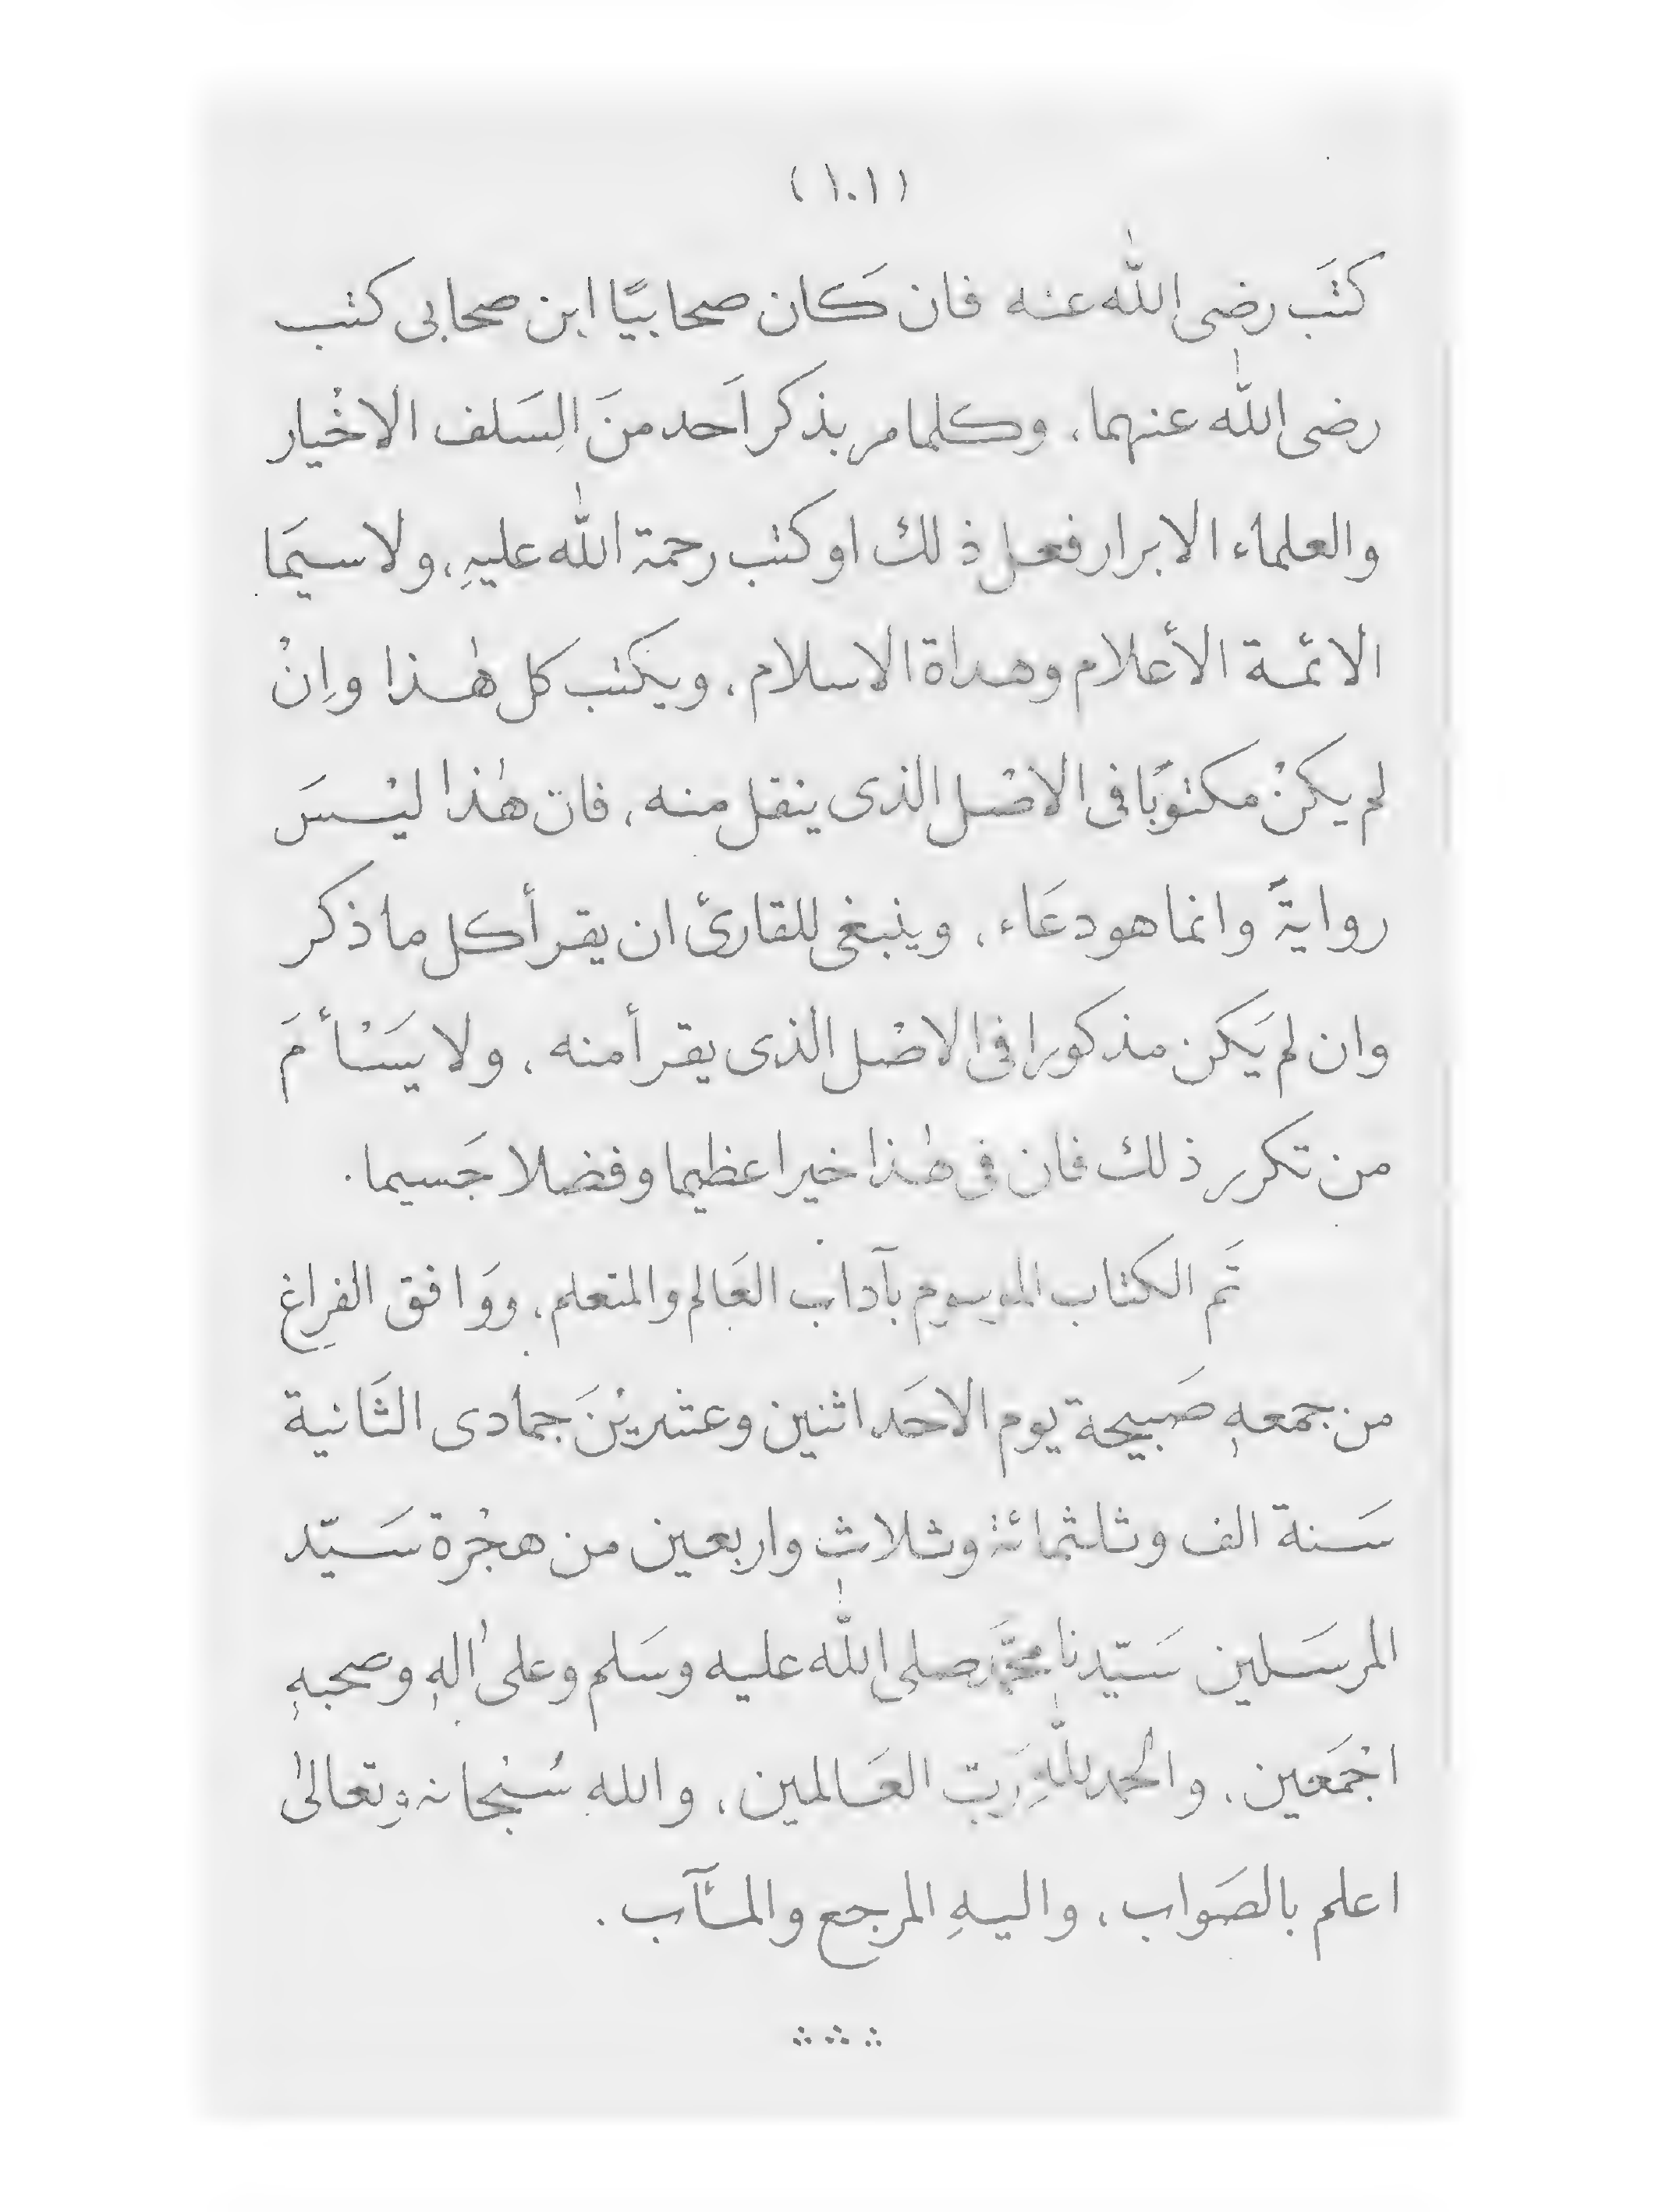 (١٠١)
كتَب رضى الله عنه فان كَان صحابيًا ابن صحابى كتب
رضى الله عنهما، وكلما مر بذكر اَحد منَ السَلف الاخْيار
والعلماء الابرار فعل ذلك او كتب رحمة الله عليهِ، ولا سيمَا
الائمة الأعلام وهداة الاسلام، ويكتب كل هٰذا واِنْ
لم يكنْ مكتوبًا فى الاصْل الذى ينقل منه، فان هٰذا ليْسَ
روايةً وانما هو دعَاء، وينبغى للقارئ ان يقرأ كل ما ذكر
وان لم يَكن مذكورا فى الاصْل الذى يقرأ منه، ولا يَسْأمَ
من تكرر ذلك فان فى هٰذا خيرا عظيما وفضلا جَسيما.
تَم الكتاب الموسوم بآداب العَالم والمتعلم، ووَافق الفراغ
من جمعهٖ صَبيحة يوم الاحَد اثنين وعشريْنَ جمادى الثَانية
سَنة الف وثلثمائة وثلاث واربعين من هجْرة سَيّد
المرسَلين سَيّدنا محمَّد صلى الله عليه وسَلم وعلىٰ اٰلهٖ وصحبهٖ
اجْمَعين، والحمد للّٰهِ رَبّ العَالمين، والله سُبْحانه وتعالىٰ
اعلم بالصَواب، واليهِ المرجع والمـآب.
∴ ∴ ∴